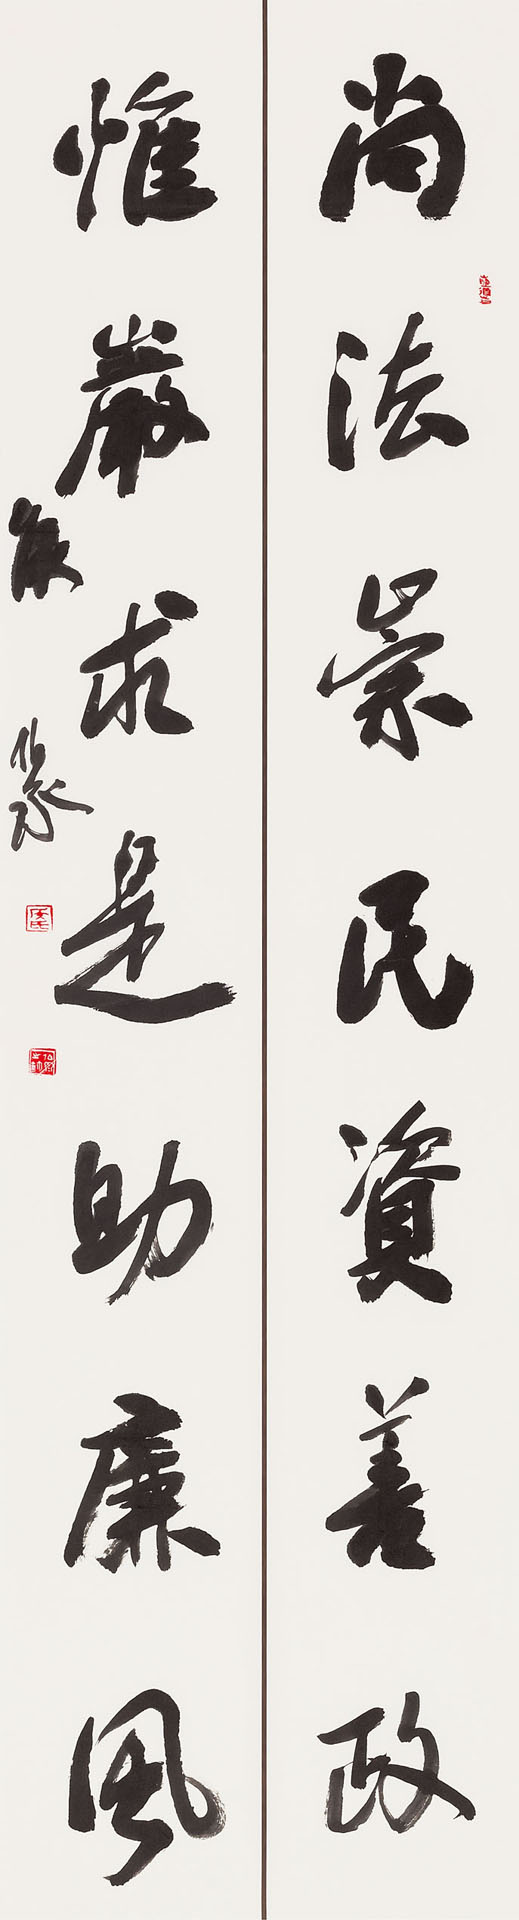 尚法崇民資善政
惟嚴求是助廉風